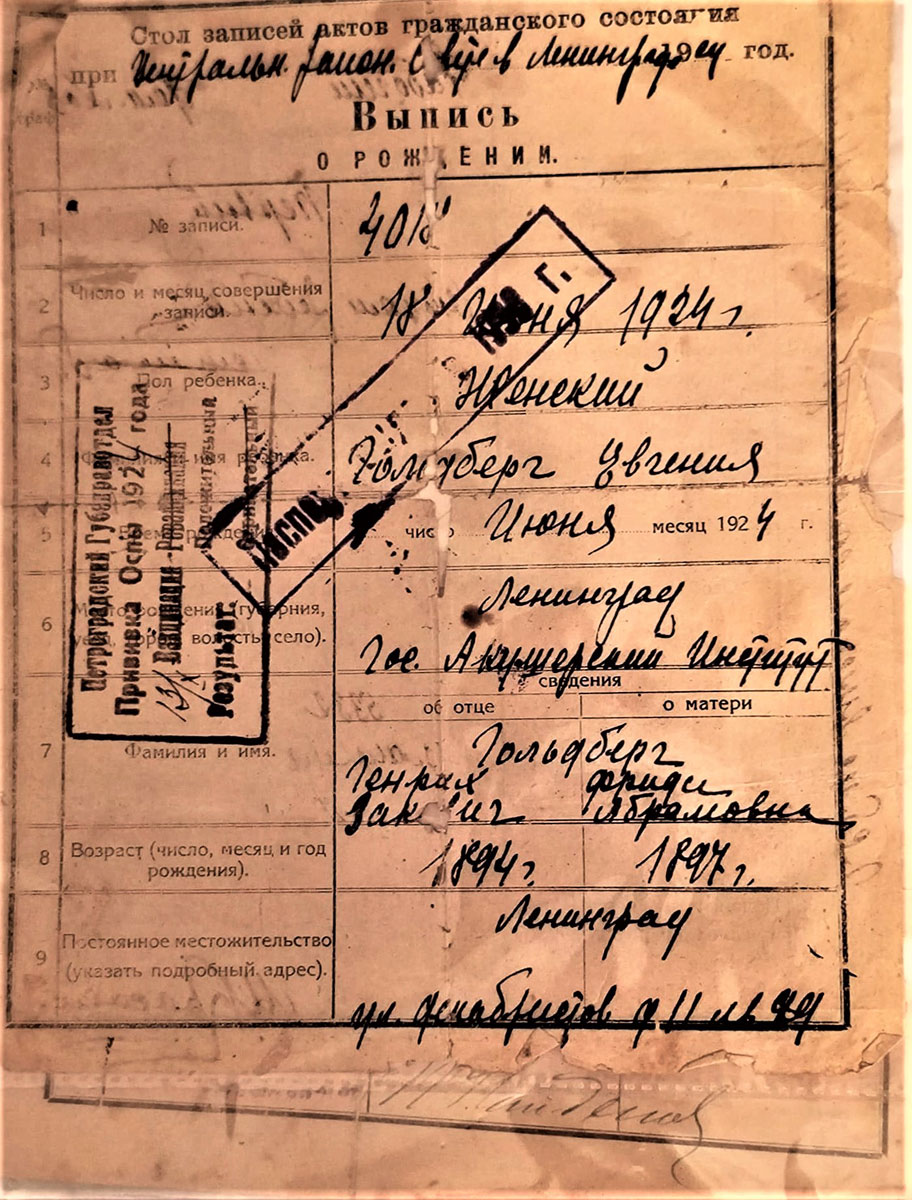 Стол записей актов гражданского состояния
при Центральн. район. в Ленинграде год.
Выпись
О РОЖДЕНИИ.
1 № записи.
2 Число и месяц совершения записи. 18 Июня 1924 г.
3 Пол ребенка. Женский
4 Фамилия и имя ребенка. Гольдберг Евгения
5 Время рождения число Июня месяц 1924 г.
6 Место рождения (губерния, уезд, город, волость, село). Ленинград
Гос. Акушерский Институт
сведения
об отце о матери
7 Фамилия и имя. Гольдберг
Генрих Фрида
Абрамовна
8 Возраст (число, месяц и год рождения). 1894 г. 1897 г.
9 Постоянное местожительство (указать подробный адрес). Ленинград
ул. Декабристов д 11 кв
Петроградский Губздравотдел
Прививка Оспы 1924 года
Вакцинация Ревакцинация
Положительный
Результат.
Отрицательный
Паспор
г.